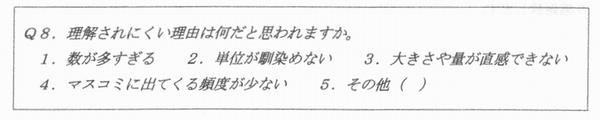 Q8．理解されにくい理由は何だと思われますか。
1．数が多すぎる　2．単位が馴染めない　3．大きさや量が直感できない
4．マスコミに出てくる頻度が少ない　5．その他（　）